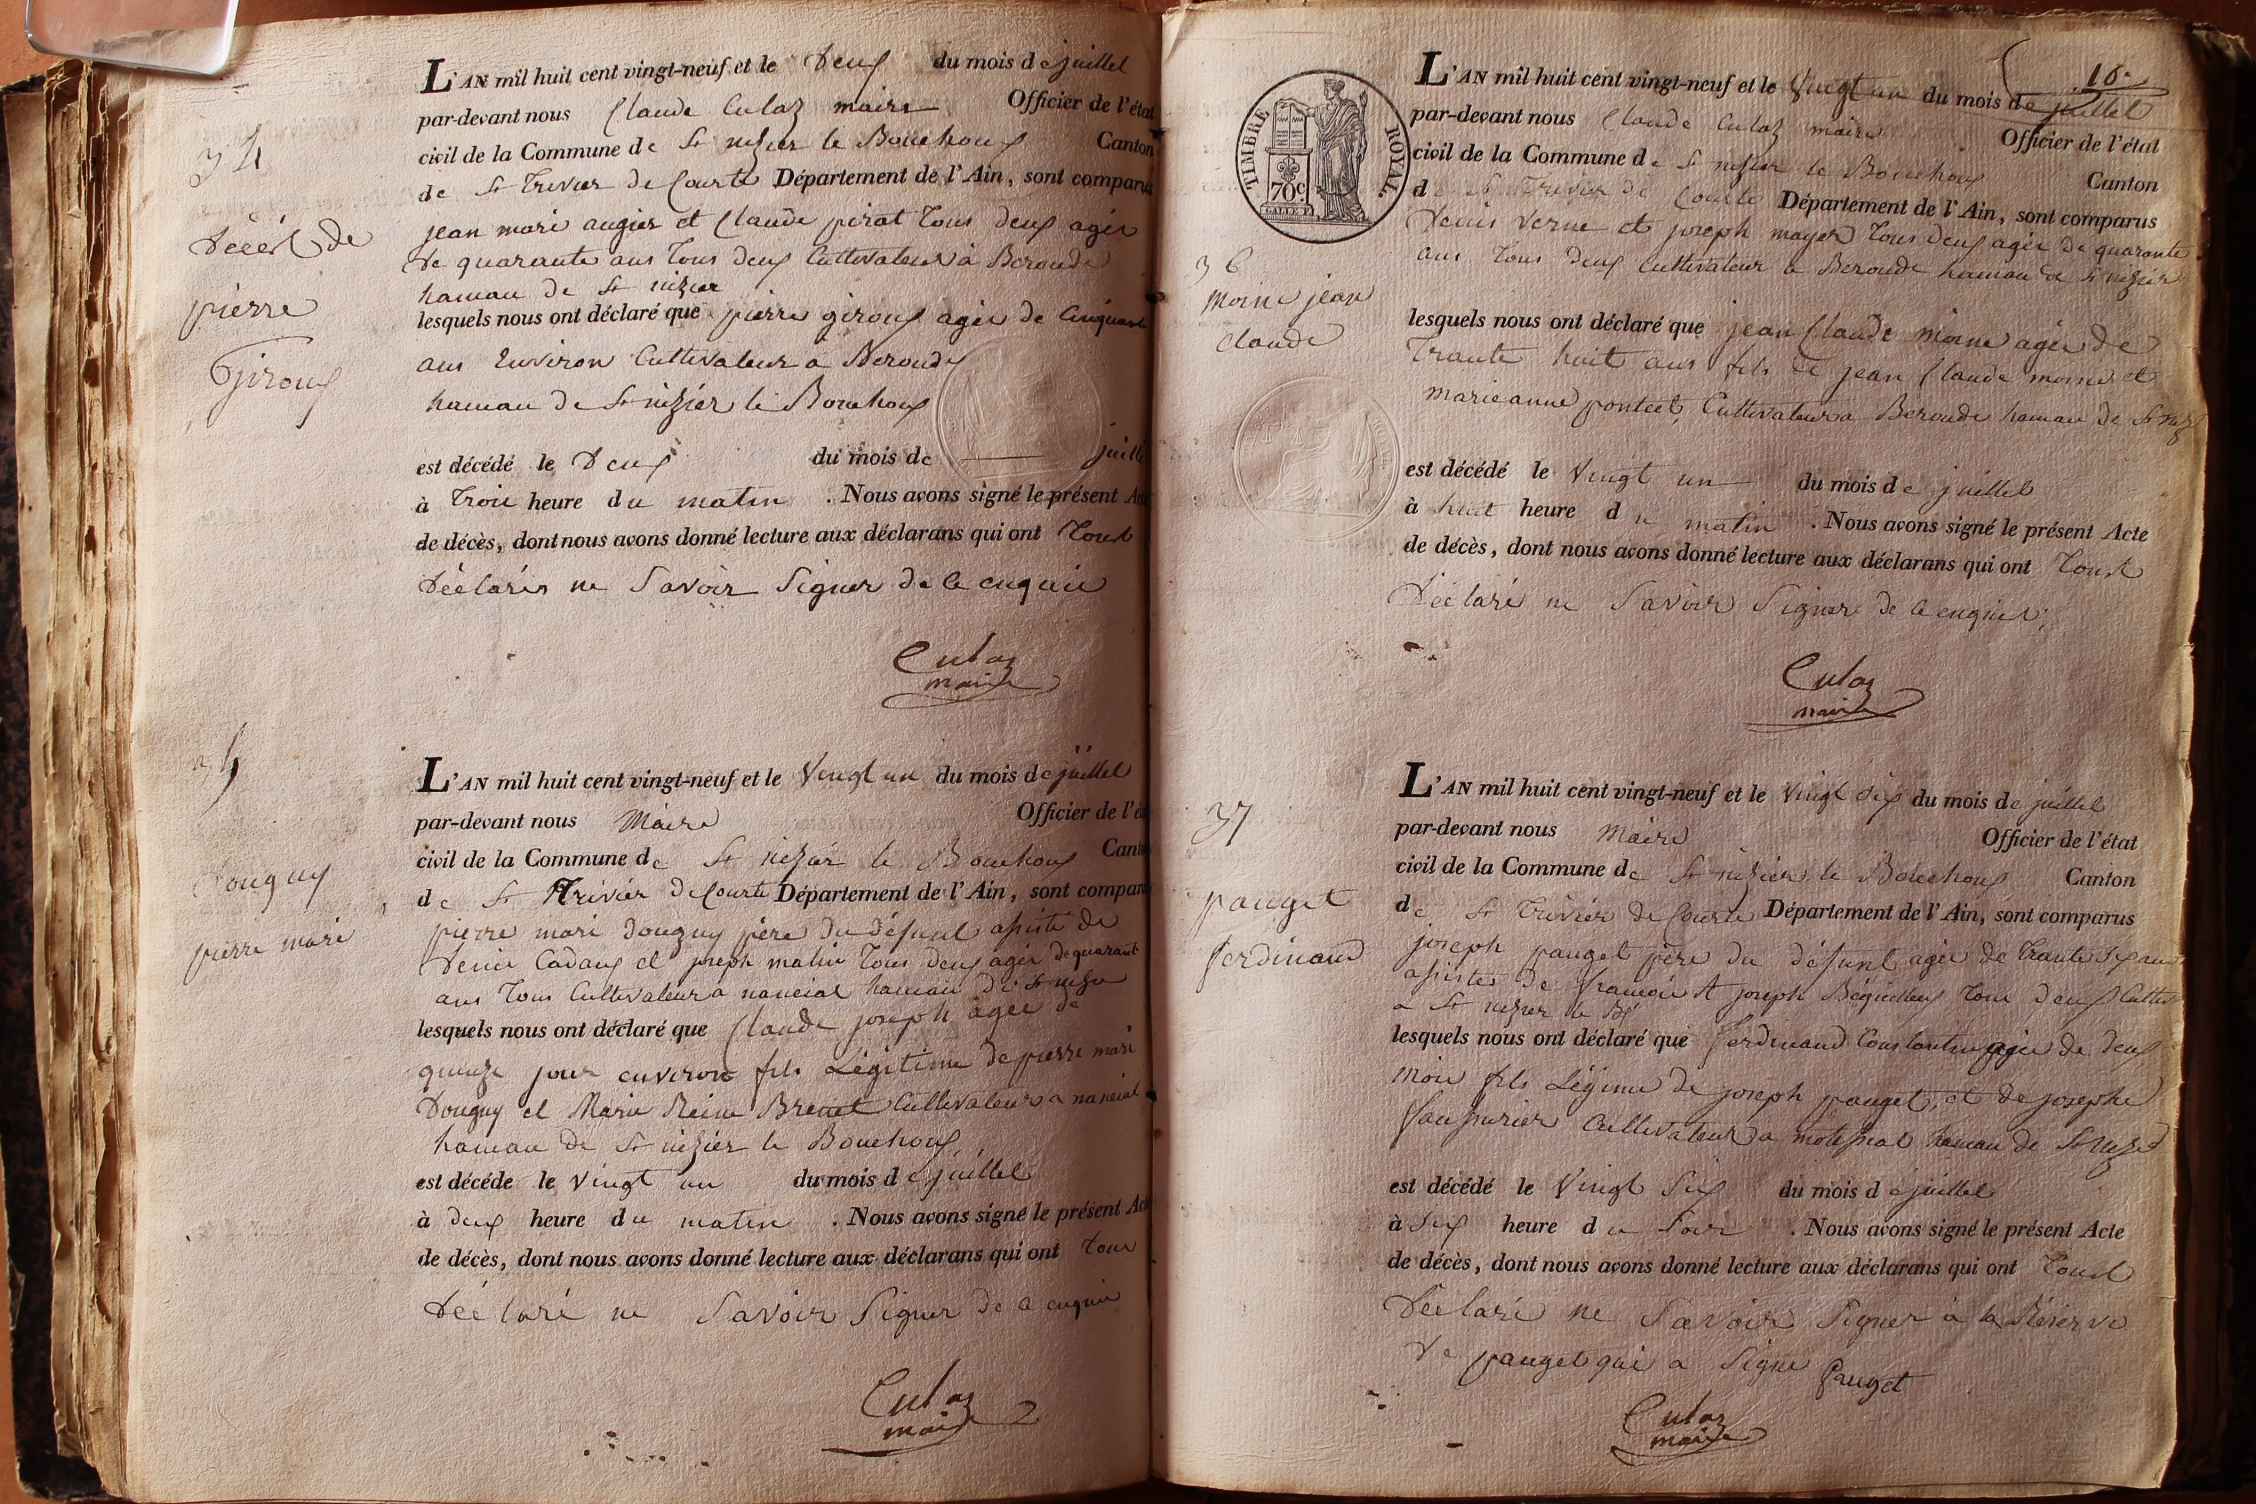 34
Décés de
pierre
Giroux
L'AN mil huit cent vingt-neuf et le Deux du mois de juillet
par-devant nous Claude Culaz maire Officier de l'état
civil de la Commune de St nizier le Bouchoux Canton
de St Trivier de Courte Département de l'Ain, sont comparus
jean mari augier et Claude pirat Tous deux agée
de quarante ans Tous deux Cultivateur à Beroude
hamau de St nizier
lesquels nous ont déclaré que pierre giroux agée de Cinquante
ans Environ Cultivateur a Beroude
hamau de St nizier le Bouchoux
est décédé le Deux du mois de juillet
à Trois heure du matin . Nous avons signé le présent Acte
de décès, dont nous avons donné lecture aux déclarans qui ont Tout
Déclarés ne Savoir Signer de ce enquie
Culaz
maire
35
Douguy
pierre mari
L'AN mil huit cent vingt-neuf et le Vingt un du mois de juillet
par-devant nous Maire Officier de l'état
civil de la Commune de St nizier le Bouchoux Canton
de St Trivier de Courte Département de l'Ain, sont comparus
pierre mari douguy père du défunt assisté de
Denis Cadaux et joseph matin Tous deux agée de quarante
ans Tous Cultivateur a nancial hamau de St nizier
lesquels nous ont déclaré que Claude joseph agée de
quinze jour environ fils Légitime de pierre mari
Douguy et Marie Reine Brenet Cultivateur a nancial
hamau de St nizier le Bouchoux
est décédé le Vingt un du mois de juillet
à deux heure du matin . Nous avons signé le présent Acte
de décès, dont nous avons donné lecture aux déclarans qui ont Tous
Déclaré ne Savoir Signer de ce enquie
Culaz
maire
16
TIMBRE ROYAL
70c
36
Moine jean
claude
L'AN mil huit cent vingt-neuf et le Vingt un du mois de juillet
par-devant nous Claude Culaz maire Officier de l'état
civil de la Commune de St nizier le Bouchoux Canton
de St Trivier de Courte Département de l'Ain, sont comparus
Denis Verne et joseph mayer Tous deux agée de quarante
ans Tous deux Cultivateur a Beroude hamau de St nizier
lesquels nous ont déclaré que jean Claude moine agée de
Trante huit ans fils de jean Claude moine et
marieanne pontet Cultivateur a Beroude hamau de St niz
est décédé le Vingt un du mois de juillet
à huit heure du matin . Nous avons signé le présent Acte
de décès, dont nous avons donné lecture aux déclarans qui ont Tout
Déclaré ne Savoir Signer de ce enquies
Culaz
maire
37
pauget
ferdinand
L'AN mil huit cent vingt-neuf et le Vingt Six du mois de juillet
par-devant nous Maire Officier de l'état
civil de la Commune de St nizier le Bouchoux Canton
de St Trivier de Courte Département de l'Ain, sont comparus
joseph pauget père du défunt agée de Trante Six ans
assistée de francois et joseph Béguilleux Tous deux Cultiv
a St nizier le B
lesquels nous ont déclaré que ferdinand Constantin agée de deux
Mois fils Légime de joseph pauget et de josephe
Cultivateur a hamau de St nizi
est décédé le Vingt Six du mois de juillet
à Six heure du Soir . Nous avons signé le présent Acte
de décès, dont nous avons donné lecture aux déclarans qui ont Tout
Déclaré ne Savoir Signer à la Réserve
de pauget qui a Signe Pauget
Culaz
maire